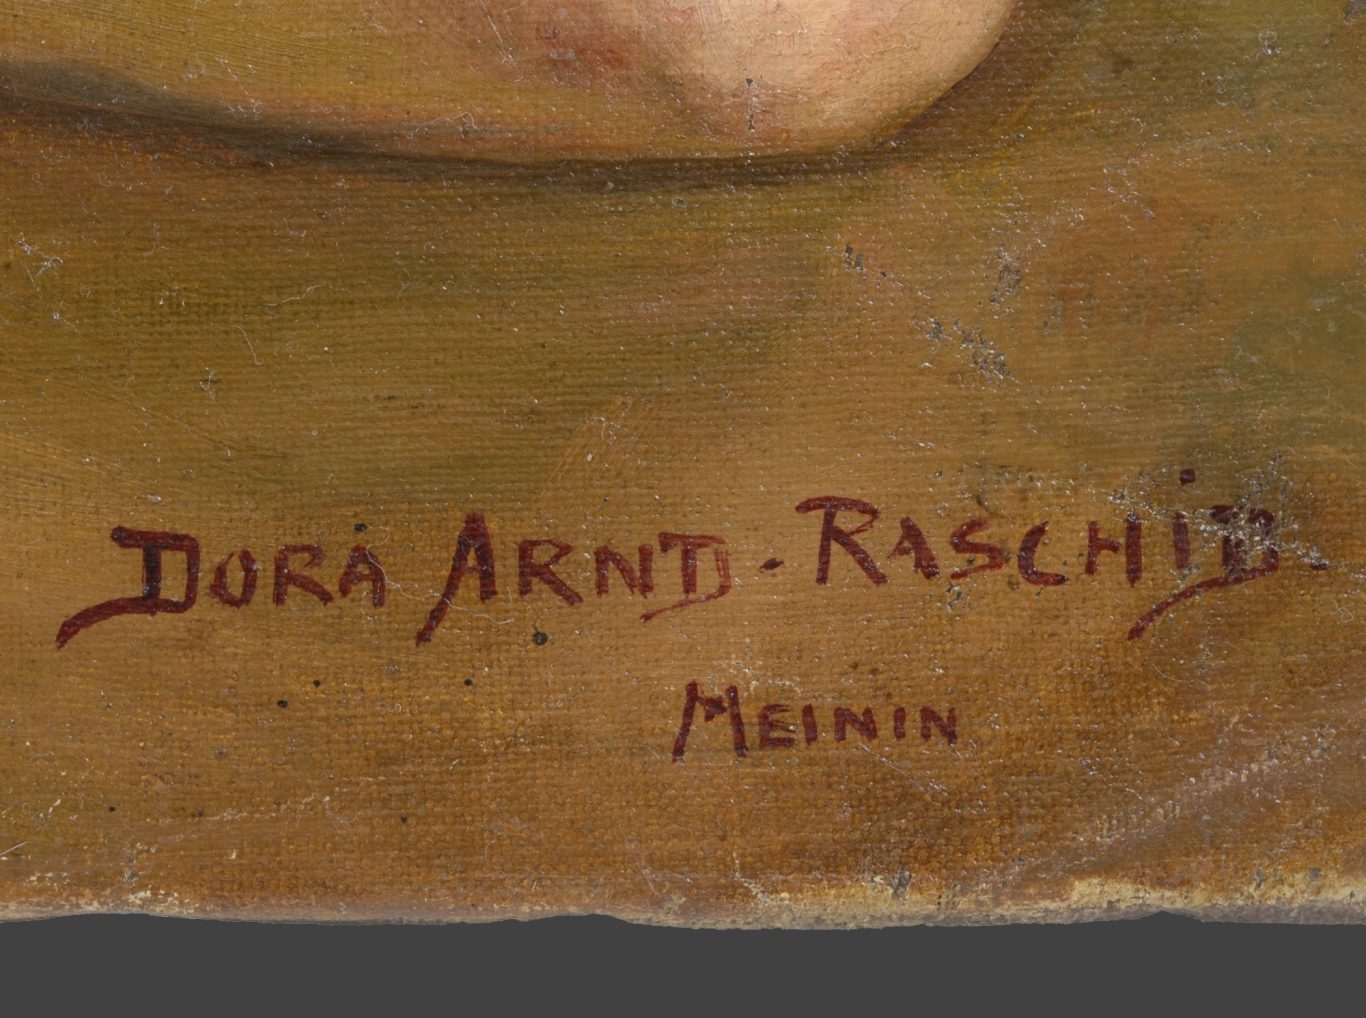 DORA ARND-RASCHID.
MEININ